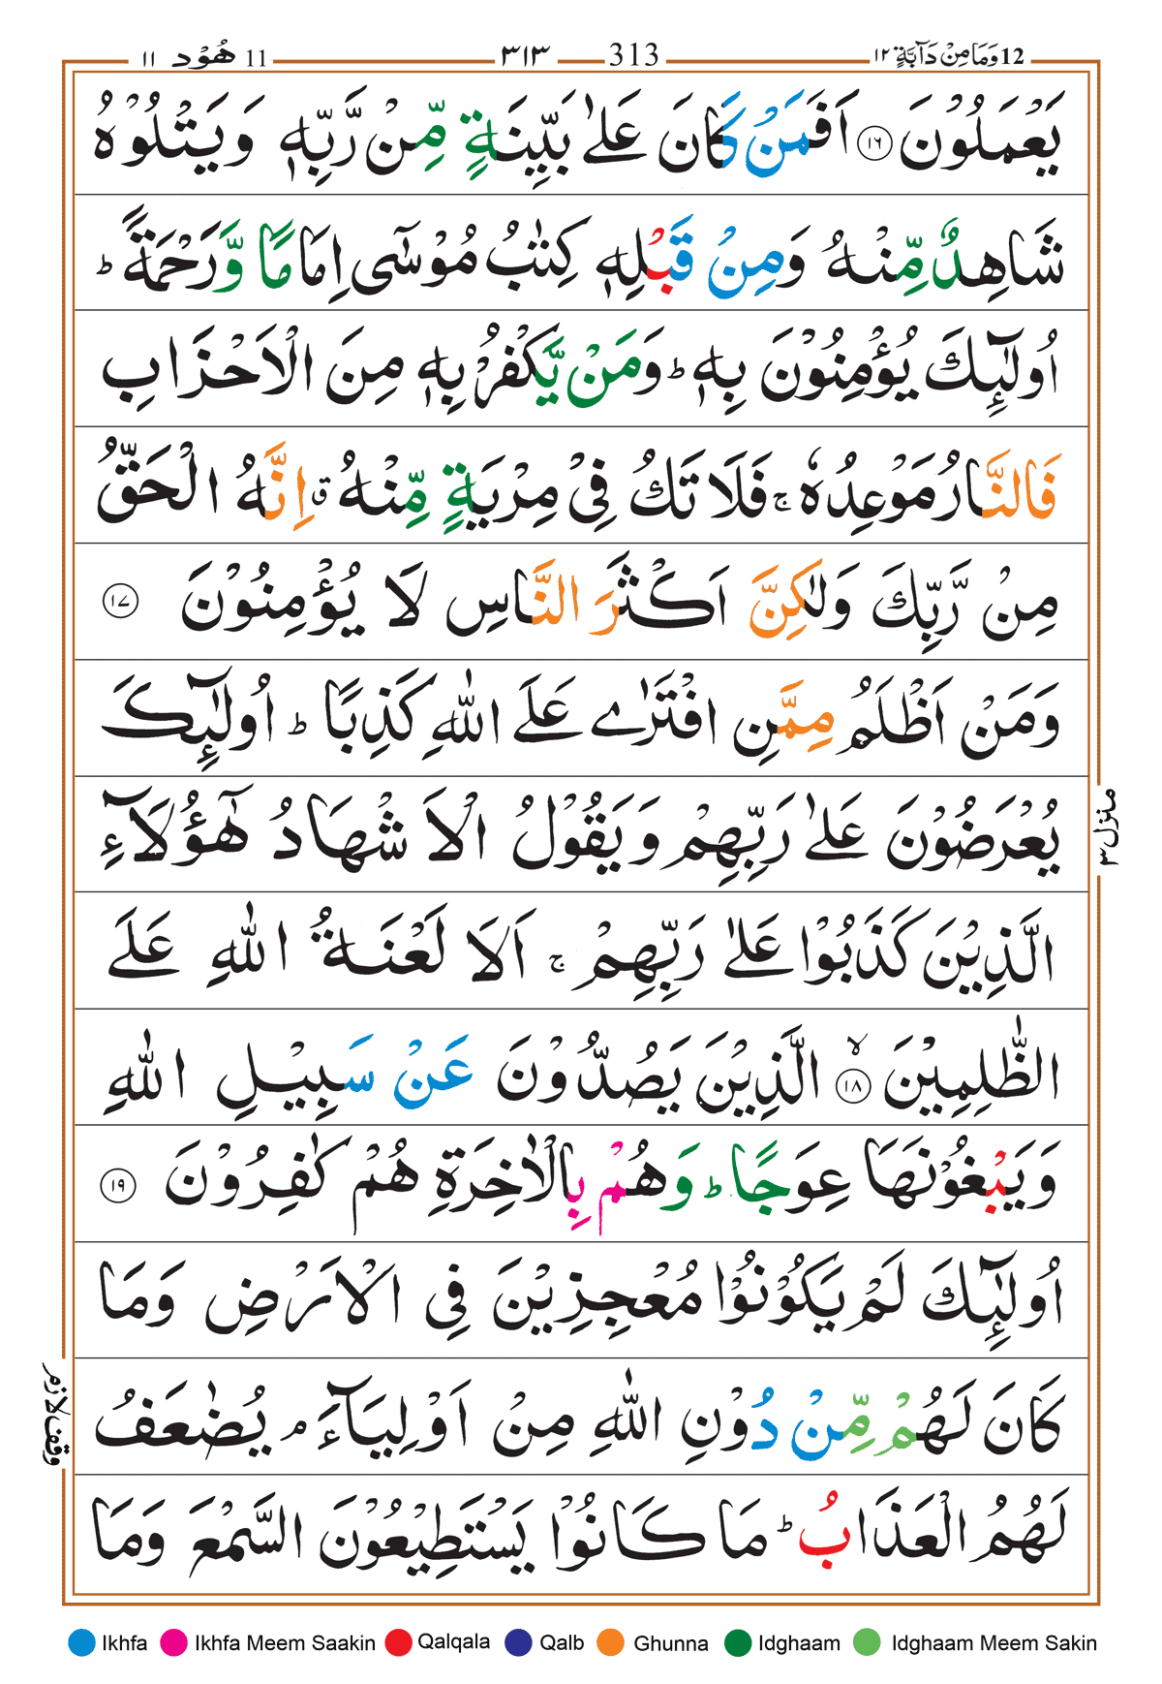 12 وَمَا مِنْ دَآبَّةٍ ١٢ 313 ٣١٣ 11 هُوْد ١١
يَعْمَلُوْنَ ١٦ اَفَمَنْ كَانَ عَلٰى بَيِّنَةٍ مِّنْ رَّبِّهٖ وَيَتْلُوْهُ
شَاهِدٌ مِّنْهُ وَمِنْ قَبْلِهٖ كِتٰبُ مُوْسٰٓى اِمَامًا وَّرَحْمَةً ؕ
اُولٰٓئِكَ يُؤْمِنُوْنَ بِهٖ ؕ وَمَنْ يَّكْفُرْ بِهٖ مِنَ الْاَحْزَابِ
فَالنَّارُ مَوْعِدُهٗ ۚ فَلَا تَكُ فِىْ مِرْيَةٍ مِّنْهُ ۗ اِنَّهُ الْحَقُّ
مِنْ رَّبِّكَ وَلٰكِنَّ اَكْثَرَ النَّاسِ لَا يُؤْمِنُوْنَ ١٧
وَمَنْ اَظْلَمُ مِمَّنِ افْتَرٰى عَلَى اللّٰهِ كَذِبًا ؕ اُولٰٓئِكَ
يُعْرَضُوْنَ عَلٰى رَبِّهِمْ وَيَقُوْلُ الْاَشْهَادُ هٰٓؤُلَاۤءِ
الَّذِيْنَ كَذَبُوْا عَلٰى رَبِّهِمْ ۚ اَلَا لَعْنَةُ اللّٰهِ عَلَى
الظّٰلِمِيْنَ ۙ ١٨ الَّذِيْنَ يَصُدُّوْنَ عَنْ سَبِيْلِ اللّٰهِ
وَيَبْغُوْنَهَا عِوَجًا ؕ وَهُمْ بِالْاٰخِرَةِ هُمْ كٰفِرُوْنَ ١٩
اُولٰٓئِكَ لَمْ يَكُوْنُوْا مُعْجِزِيْنَ فِى الْاَرْضِ وَمَا
كَانَ لَهُمْ مِّنْ دُوْنِ اللّٰهِ مِنْ اَوْلِيَآءَ ۘ يُضٰعَفُ
لَهُمُ الْعَذَابُ ؕ مَا كَانُوْا يَسْتَطِيْعُوْنَ السَّمْعَ وَمَا
منزل ٣
وقف لازم
Ikhfa Ikhfa Meem Saakin Qalqala Qalb Ghunna Idghaam Idghaam Meem Sakin